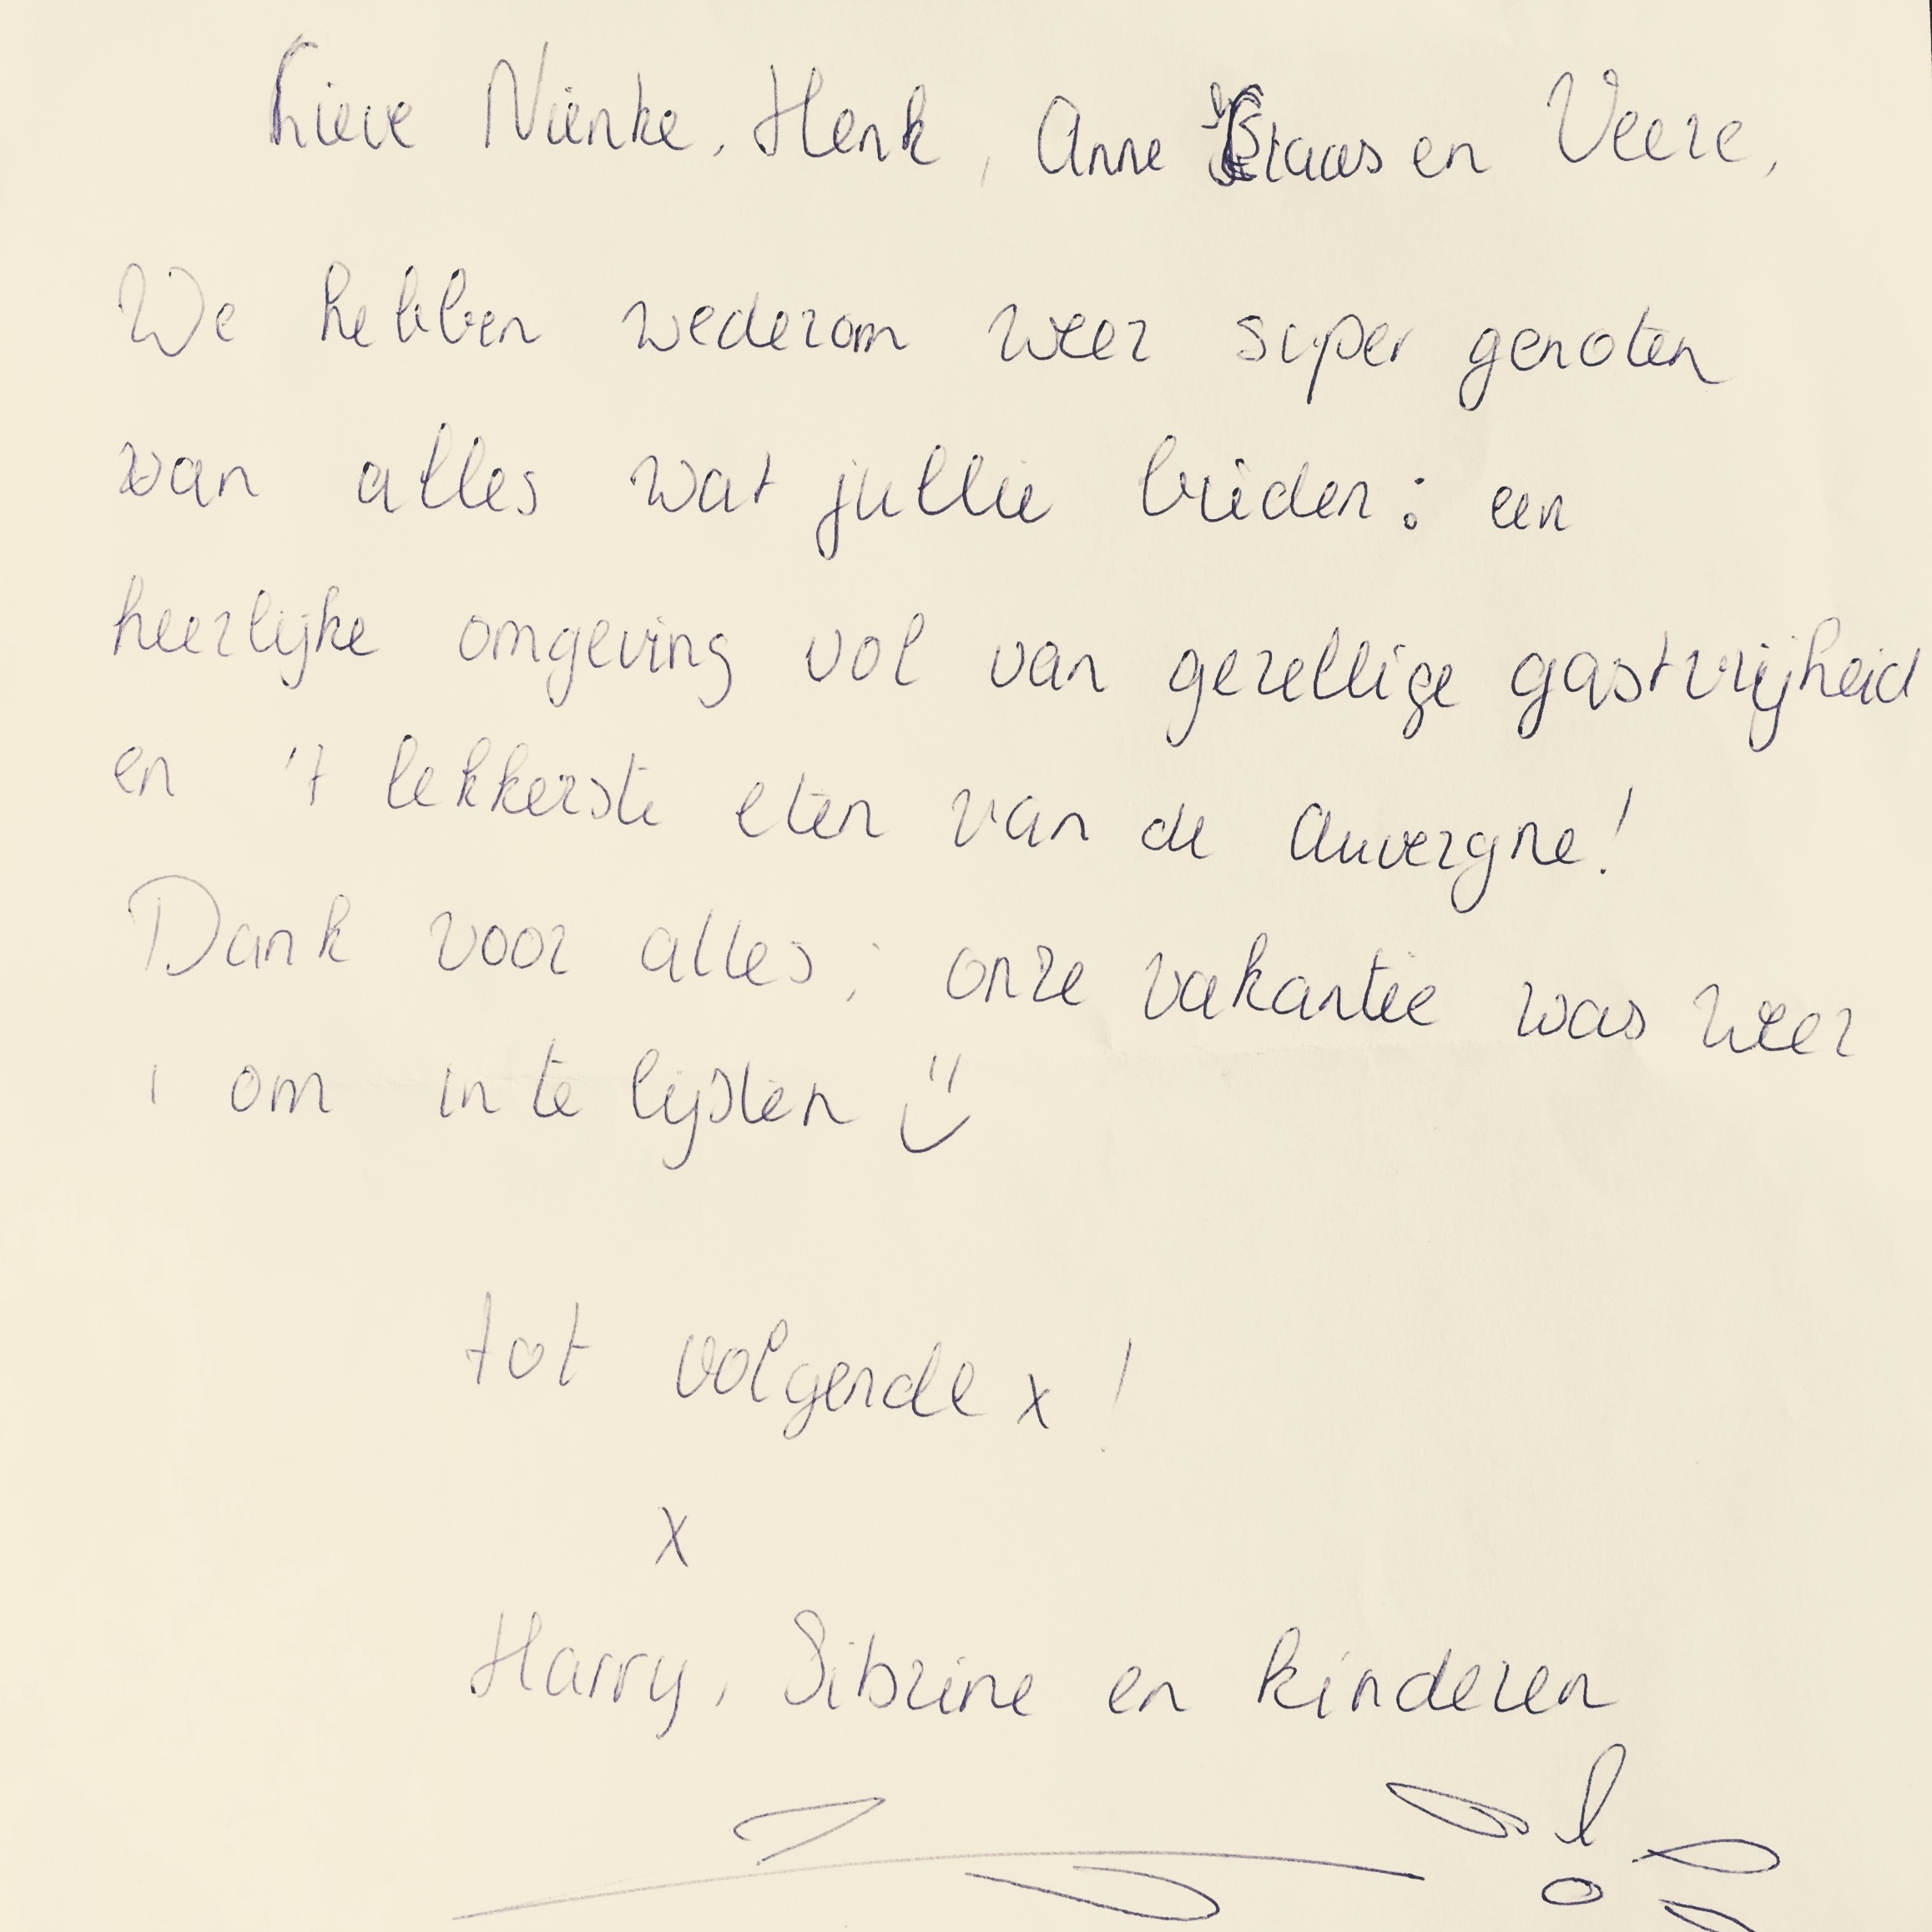 Lieve Nienke, Henk, Anne Klaas en Veere,
We hebben wederom weer super genoten
van alles wat jullie bieden: een
heerlijke omgeving vol van gezellige gastvrijheid
en 't lekkerste eten van de Auvergne!
Dank voor alles; onze vakantie was weer
1 om in te lijsten
tot volgende x!
x
Harry, Sibrine en kinderen